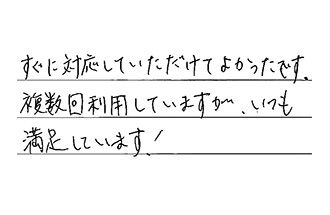 すぐに対応していただけてよかったです。
複数回利用していますが、いつも
満足しています!